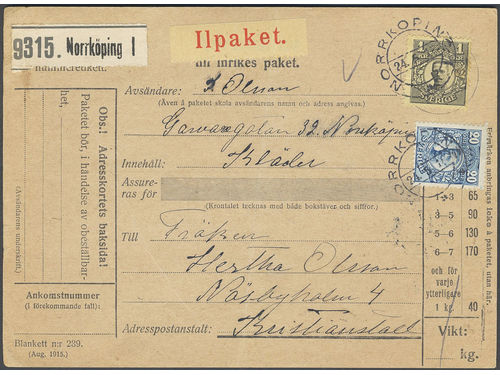 9315. Norrköping 1
Ilpaket.
till inrikes paket.
Avsändare: S. Olsson
(Även å paketet skola avsändarens namn och adress angivas.)
Garvaregatan 32. Norrköping
Innehåll: Kläder
Assure-
ras för
(Krontalet tecknas med både bokstäver och siffror.)
Till Fröken
Hertha Olsson
Näsbyholm 4
Adresspostanstalt: Kristianstad
Obs.! Adresskortets baksida!
Paketet bör, i händelse av obeställbar-
het,
(Avsändarens underskrift.)
Ankomstnummer
(I förekommande fall):
Blankett n:r 239.
(Aug. 1915.)
NORRKÖPING
24.
1
SVERIGE
NORRKÖPING
24
20 20
1-3 65
3-5 90
5-6 130
6-7 170
och för
varje
ytterligare
1 kg. 40
Frimärken anbringas
å paketet, utan här.
Vikt:
kg.